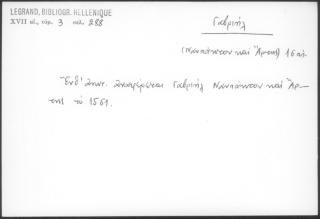 LEGRAND, BIBLIOGR. HELLENIQUE
XVII αἰ., τόμ. 3 σελ. 288
Γαβριήλ
(Ναυπάκτου καὶ Ἄρτης) 16 αἰ.
Ἔνθ' ἀνωτ. ἀναφέρεται Γαβριήλ Ναυπάκτου καὶ Ἄρ-
της τὸ 1561.